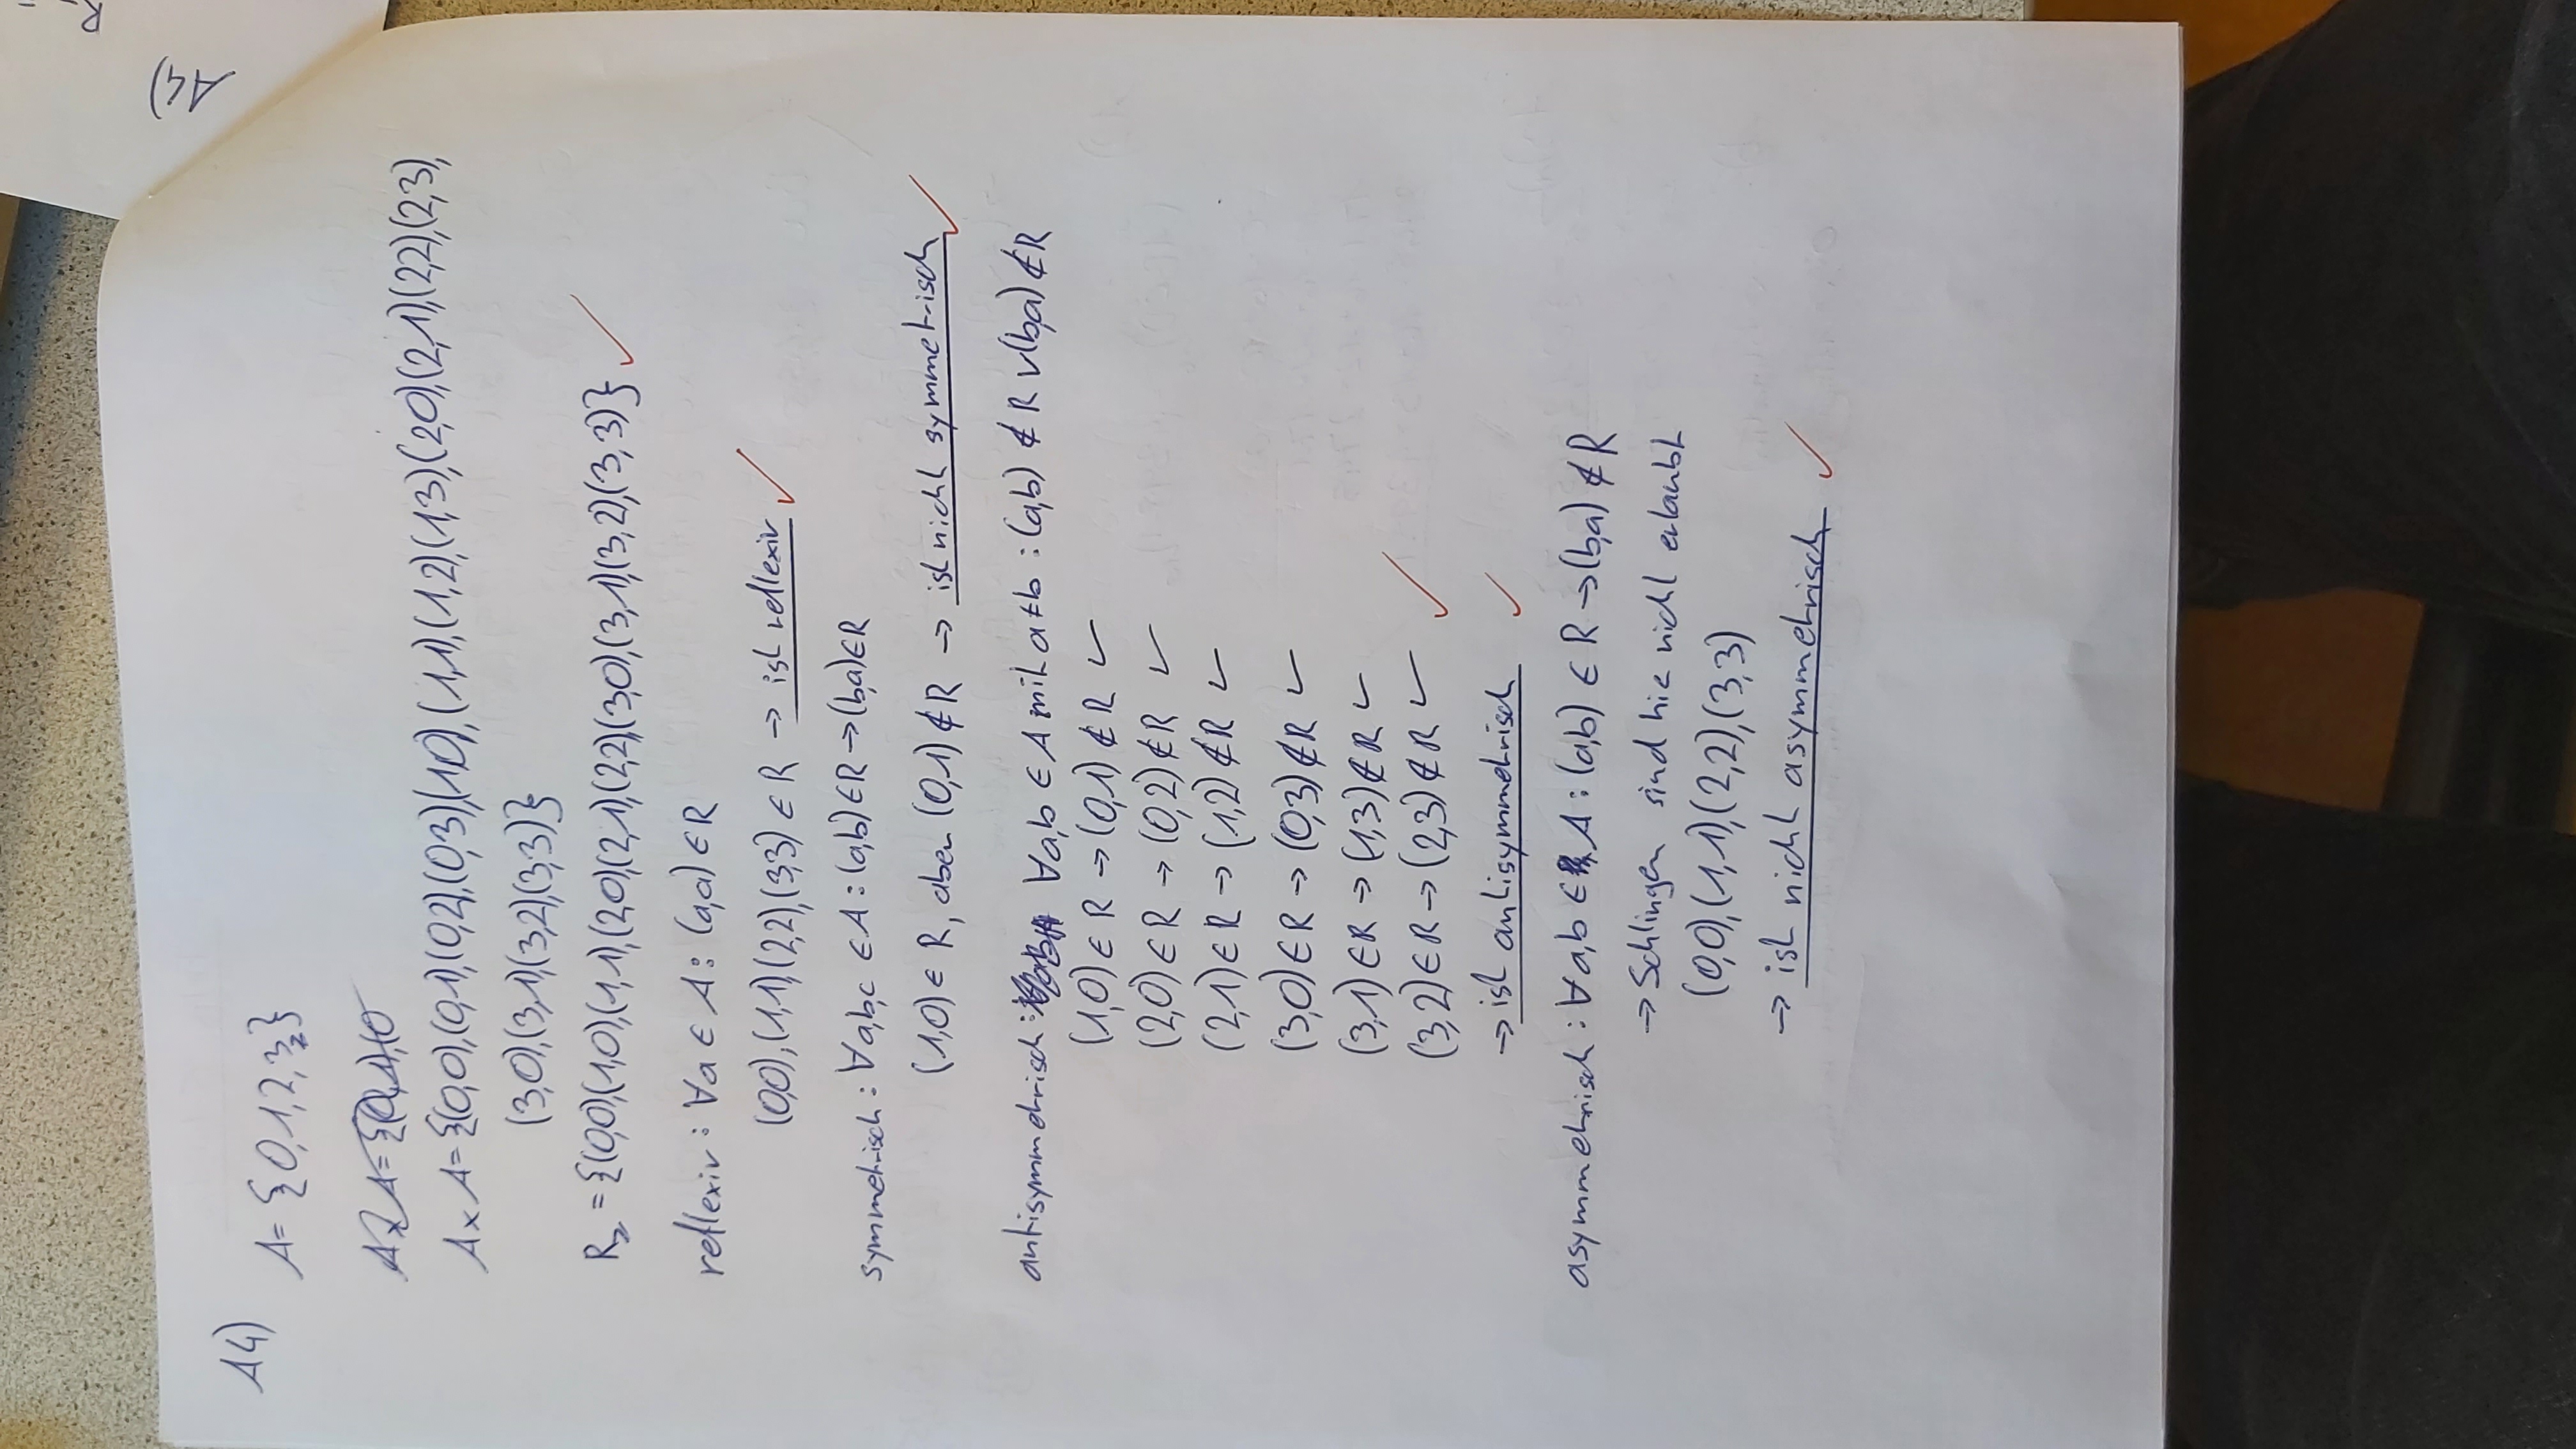 A4)
A = {0,1,2,3}
A x A = {(0,1),(0
A x A = {(0,0),(0,1),(0,2),(0,3),(1,0),(1,1),(1,2),(1,3),(2,0),(2,1),(2,2),(2,3),
(3,0),(3,1),(3,2),(3,3)}
R₂ = {(0,0),(1,0),(1,1),(2,0),(2,1),(2,2),(3,0),(3,1),(3,2),(3,3)} ✓
reflexiv: ∀a ∈ A: (a,a) ∈ R
(0,0),(1,1),(2,2),(3,3) ∈ R → ist reflexiv ✓
symmetrisch: ∀a,b,c ∈ A: (a,b) ∈ R → (b,a) ∈ R
(1,0) ∈ R, aber (0,1) ∉ R → ist nicht symmetrisch ✓
antisymmetrisch: ∀a,b ∈ A mit a≠b : (a,b) ∉ R ∨ (b,a) ∉ R
(1,0) ∈ R → (0,1) ∉ R ✓
(2,0) ∈ R → (0,2) ∉ R ✓
(2,1) ∈ R → (1,2) ∉ R ✓
(3,0) ∈ R → (0,3) ∉ R ✓
(3,1) ∈ R → (1,3) ∉ R ✓
(3,2) ∈ R → (2,3) ∉ R ✓ ✓
→ ist antisymmetrisch ✓
asymmetrisch: ∀a,b ∈ A: (a,b) ∈ R → (b,a) ∉ R
→ Schlingen sind hie nicht erlaubt
(0,0),(1,1),(2,2),(3,3)
→ ist nicht asymmetrisch ✓
A4)
R